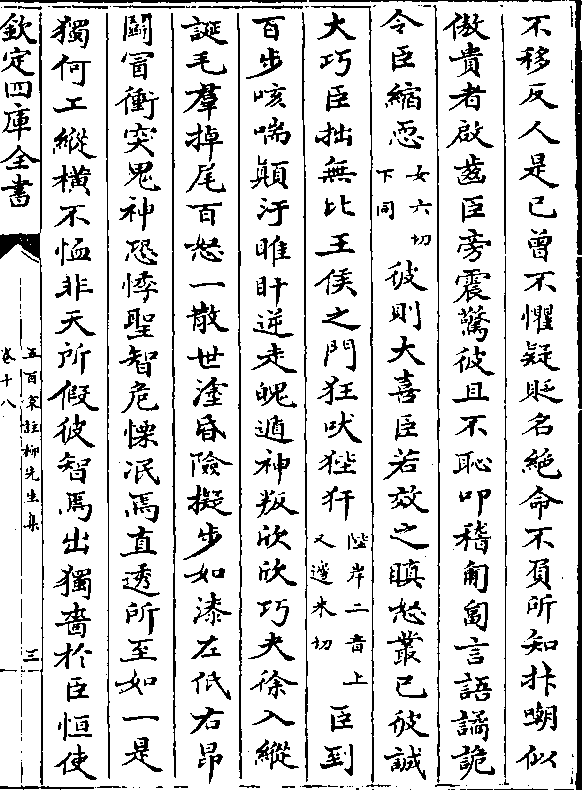 不移反人是已曾不懼疑貶名絶命不負所知抃嘲似
傲貴者啟齒臣旁震驚彼且不恥叩稽匍匐言語譎詭
令臣縮恧女六切下同彼則大喜臣若效之瞋怒叢已彼誠
大巧臣拙無比王侯之門狂吠狴犴陛岸二音上又邊米切臣到
百步喉喘顛汙睢盱逆走魄遁神叛欣欣巧夫徐入縱
誕毛羣掉尾百怒一散世塗昏險擬步如漆左低右昂
鬭冒衝突鬼神恐悸聖智危慄泯焉直透所至如一是
獨何工縱橫不恤非天所假彼智焉出獨嗇於臣恒使
欽定四庫全書
五百家註柳先生集
卷十八
三